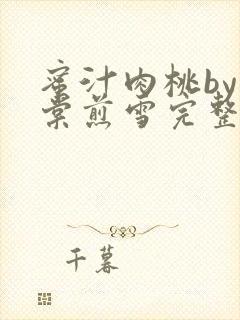 蜜汁肉桃by
棠煎雪完整
千暮